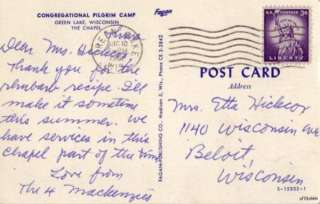 CONGREGATIONAL PILGRIM CAMP
GREEN LAKE, WISCONSIN
THE CHAPEL
Fagan
GREEN LAKE
Dear Mrs.
Thank you for the
rhubarb recipe. I'll
make it sometime
this summer. We
have services in this
chapel part of the time
Love from
The 4 Mackenzies
FAGAN PUBLISHING CO. Madison 3, Wis., Phone CE 3-3842
U.S. POSTAGE
3¢
LIBERTY
POST CARD
Address
Mrs. Etta
1140 Wisconsin ave
Beloit,
Wisconsin
S-12202-1